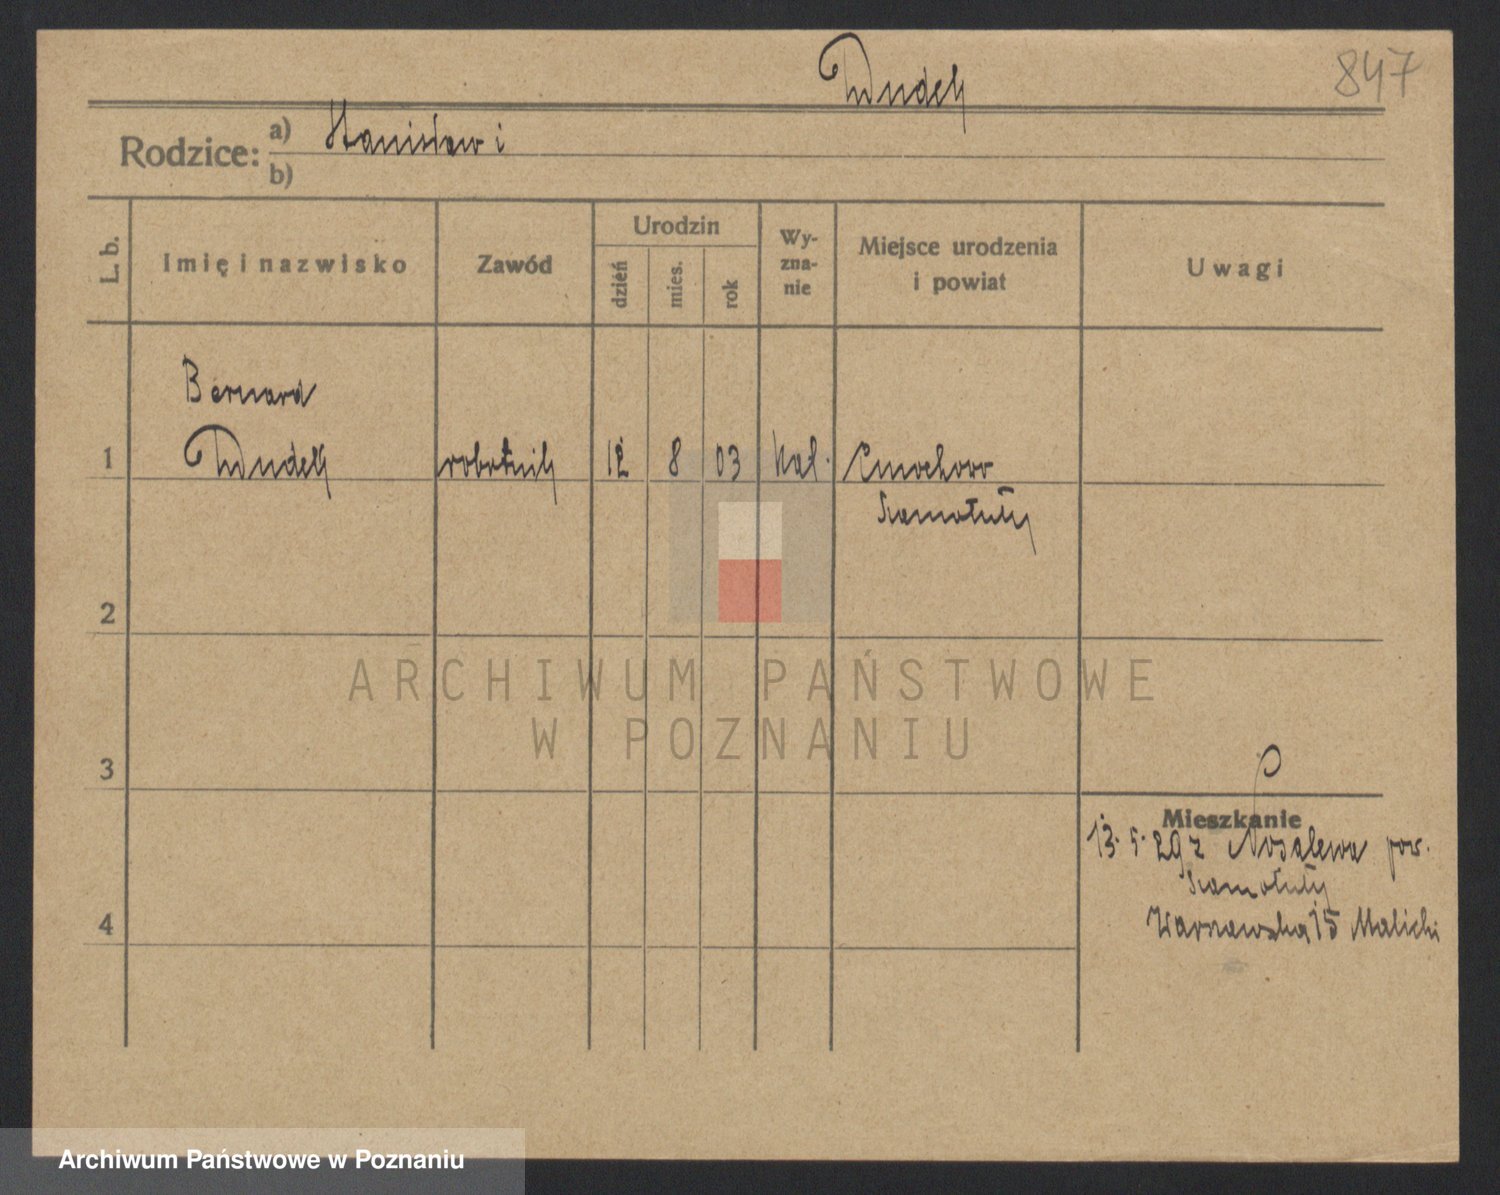 Dudek
847
Rodzice: a) Stanisław i
b)
L. b.
Imię i nazwisko
Zawód
Urodzin
dzień
mies.
rok
Wy-
zna-
nie
Miejsce urodzenia
i powiat
Uwagi
Bernard
1 Dudek robotnik 12 8 03 kat. Ćmachowo
Szamotuły
2
ARCHIWUM PAŃSTWOWE
W POZNANIU
3
Mieszkanie
13. 5. 29 z Nosalewa pow.
Szamotuły
4 Warszawska 15 Malicki
Archiwum Państwowe w Poznaniu